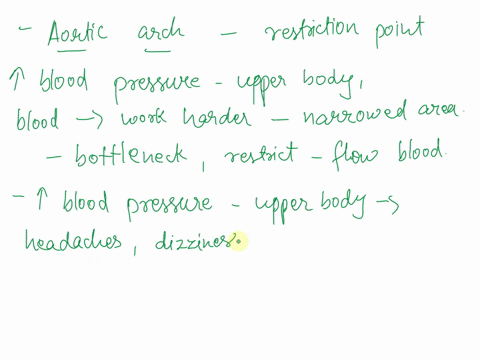 - Aortic arch - restriction point
↑ blood pressure - upper body,
blood → work harder - narrowed area.
- bottleneck, restrict - flow blood.
- ↑ blood pressure - upper body →
headaches, dizzines